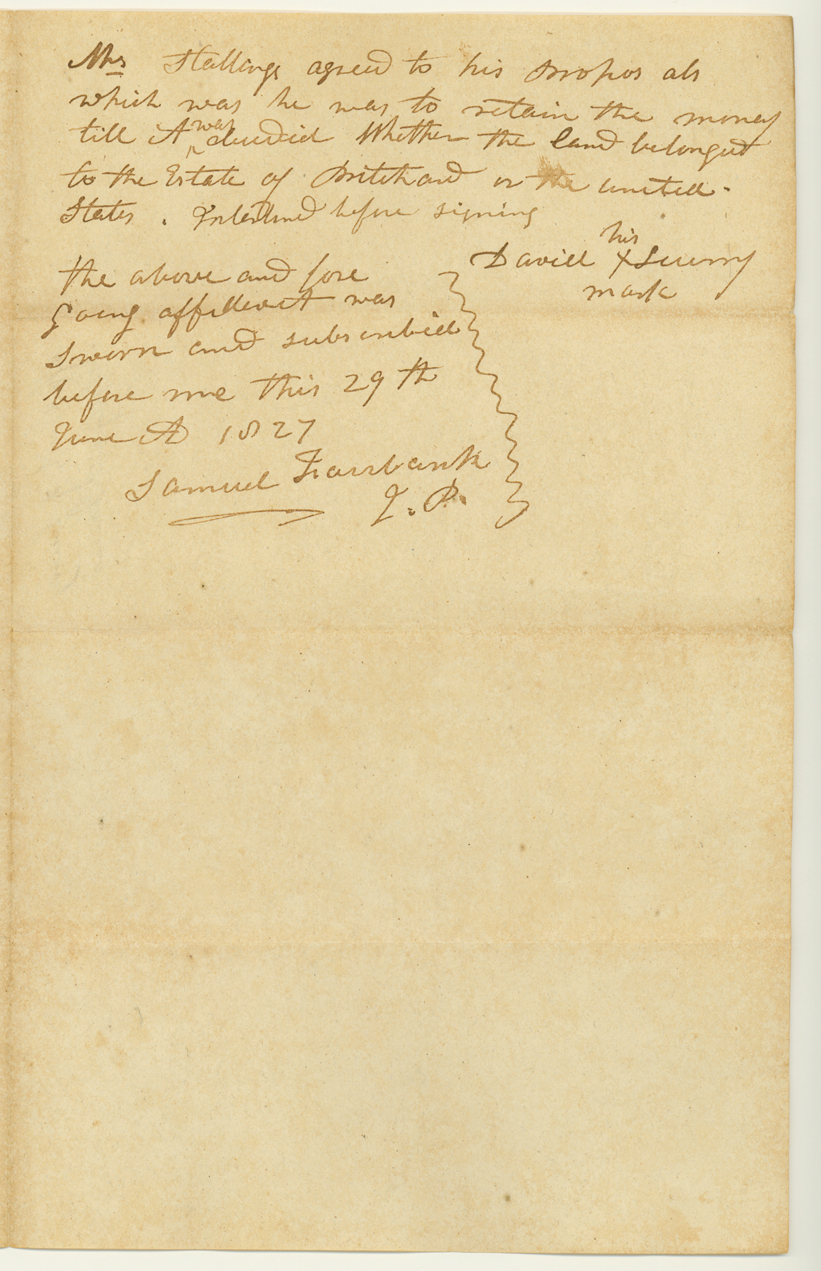 Mrs Stallings agreed to his Propos als
which was he was to retain the money
till it was decided Whether the land belonged
to the Estate of Pritchard or the united
States . Interlined before signing
his
David X Scurry
mark
the above and fore
going affidevit was
Sworn and subscribid
before me this 29 th
June AD 1827
Samuel Fairbank
J. P.